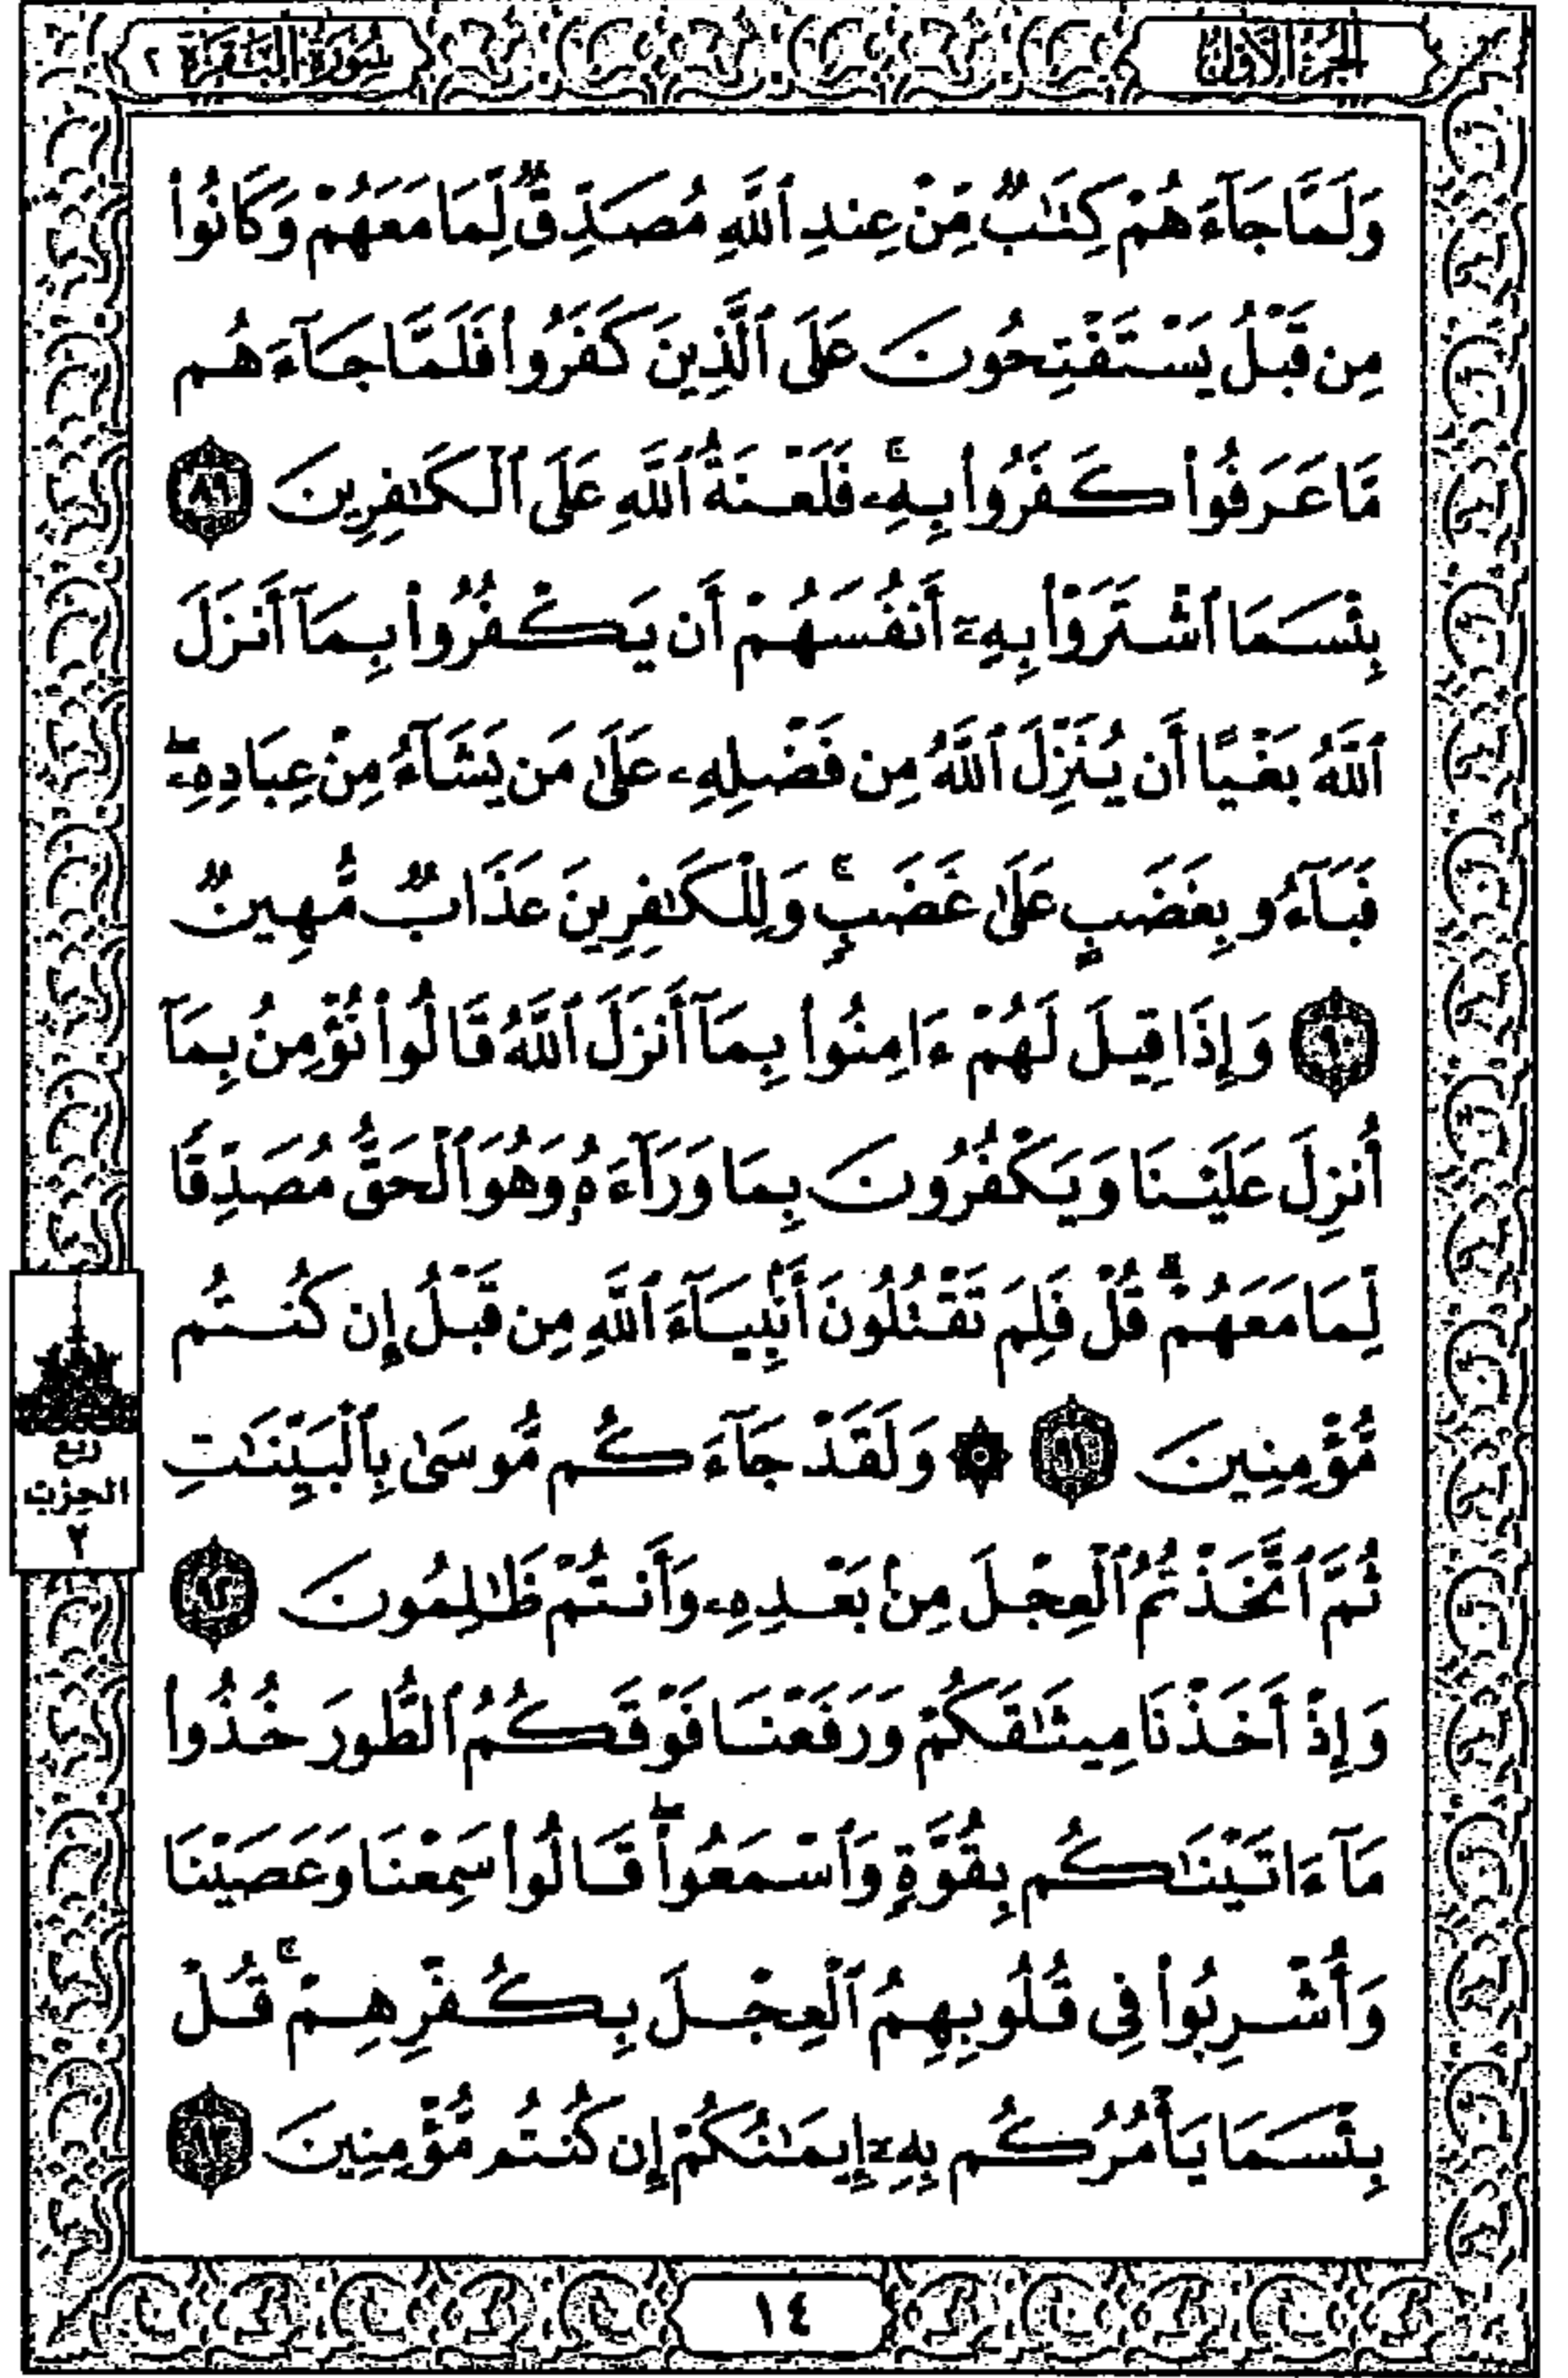 الجزء الأول
سورة البقرة ٢
وَلَمَّا جَآءَهُمْ كِتَٰبٌ مِّنْ عِندِ ٱللَّهِ مُصَدِّقٌ لِّمَا مَعَهُمْ وَكَانُوا۟
مِن قَبْلُ يَسْتَفْتِحُونَ عَلَى ٱلَّذِينَ كَفَرُوا۟ فَلَمَّا جَآءَهُم
مَّا عَرَفُوا۟ كَفَرُوا۟ بِهِۦ ۚ فَلَعْنَةُ ٱللَّهِ عَلَى ٱلْكَٰفِرِينَ ٨٩
بِئْسَمَا ٱشْتَرَوْا۟ بِهِۦٓ أَنفُسَهُمْ أَن يَكْفُرُوا۟ بِمَآ أَنزَلَ
ٱللَّهُ بَغْيًا أَن يُنَزِّلَ ٱللَّهُ مِن فَضْلِهِۦ عَلَىٰ مَن يَشَآءُ مِنْ عِبَادِهِۦ ۖ
فَبَآءُو بِغَضَبٍ عَلَىٰ غَضَبٍ ۚ وَلِلْكَٰفِرِينَ عَذَابٌ مُّهِينٌ
٩٠ وَإِذَا قِيلَ لَهُمْ ءَامِنُوا۟ بِمَآ أَنزَلَ ٱللَّهُ قَالُوا۟ نُؤْمِنُ بِمَآ
أُنزِلَ عَلَيْنَا وَيَكْفُرُونَ بِمَا وَرَآءَهُۥ وَهُوَ ٱلْحَقُّ مُصَدِّقًا
لِّمَا مَعَهُمْ ۗ قُلْ فَلِمَ تَقْتُلُونَ أَنۢبِيَآءَ ٱللَّهِ مِن قَبْلُ إِن كُنتُم
مُّؤْمِنِينَ ٩١ ۞ وَلَقَدْ جَآءَكُم مُّوسَىٰ بِٱلْبَيِّنَٰتِ
ثُمَّ ٱتَّخَذْتُمُ ٱلْعِجْلَ مِنۢ بَعْدِهِۦ وَأَنتُمْ ظَٰلِمُونَ ٩٢
وَإِذْ أَخَذْنَا مِيثَٰقَكُمْ وَرَفَعْنَا فَوْقَكُمُ ٱلطُّورَ خُذُوا۟
مَآ ءَاتَيْنَٰكُم بِقُوَّةٍ وَٱسْمَعُوا۟ ۖ قَالُوا۟ سَمِعْنَا وَعَصَيْنَا
وَأُشْرِبُوا۟ فِى قُلُوبِهِمُ ٱلْعِجْلَ بِكُفْرِهِمْ ۚ قُلْ
بِئْسَمَا يَأْمُرُكُم بِهِۦٓ إِيمَٰنُكُمْ إِن كُنتُم مُّؤْمِنِينَ ٩٣
ربع
الحزب
٢
١٤